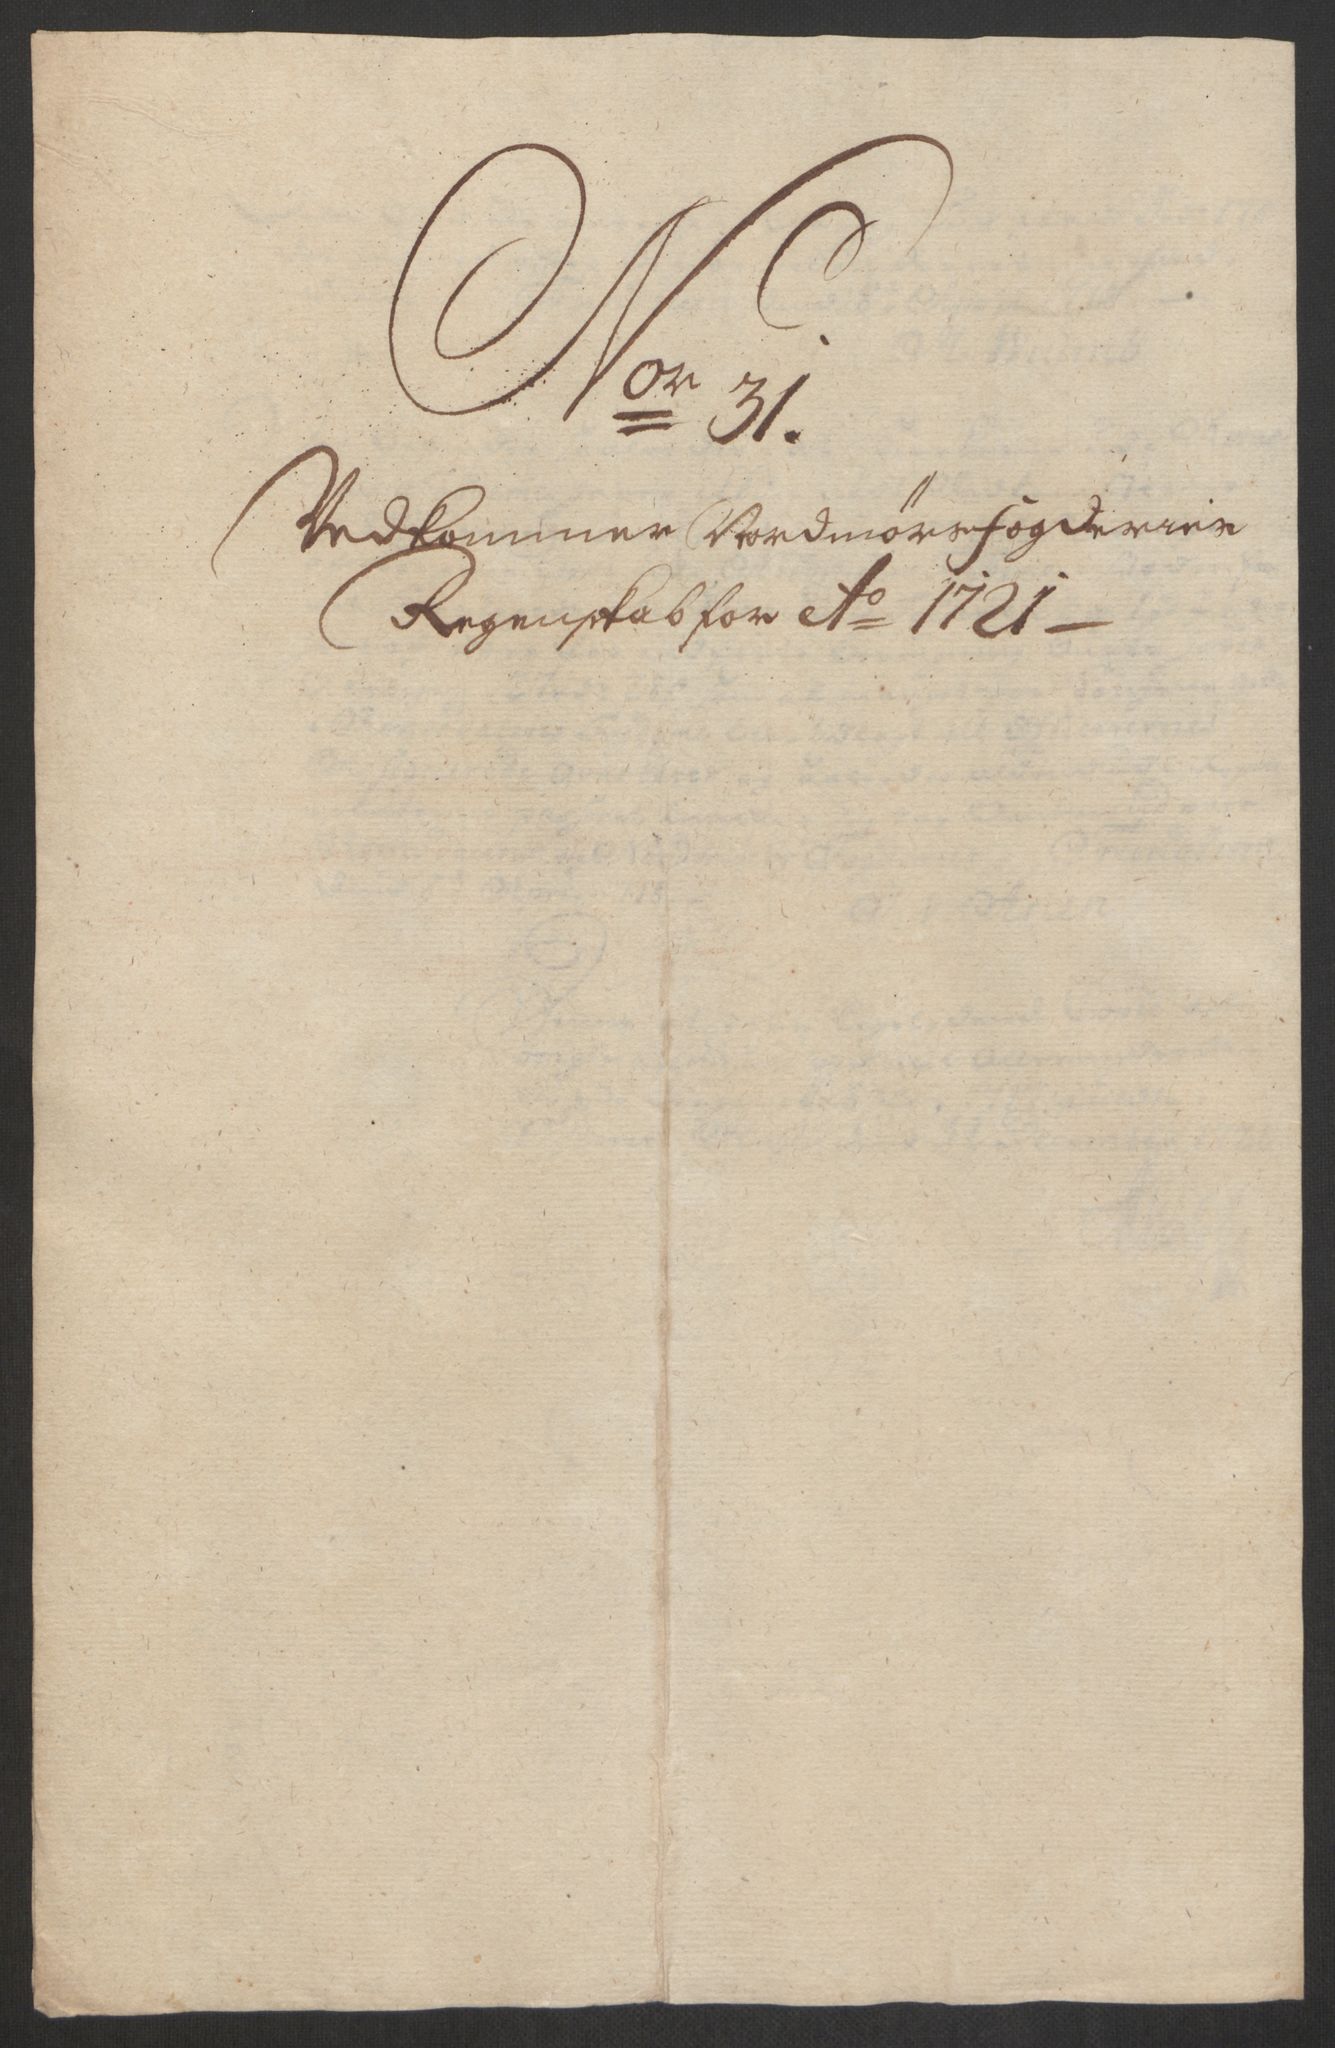 Nor 31.
Vedkommer Nordmørs fogderies
Regenskab for Ao 1721